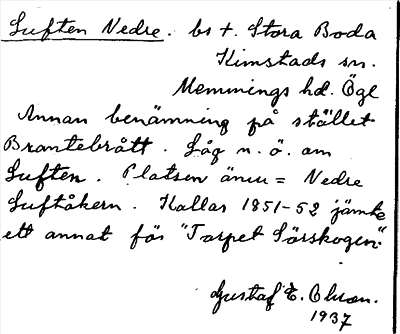 Luften Nedre. bs t. Stora Boda
Kimstads sn.
Memmings hd. Ögl
Annan benämning på stället
Brantebrått. Låg n. ö. om
Luften. Platsen ännu = Nedre
Luftåkern. Kallas 1851-52 jämte
ett annat för "Torpet Sörskogen."
Gustaf E. Olsson.
1937